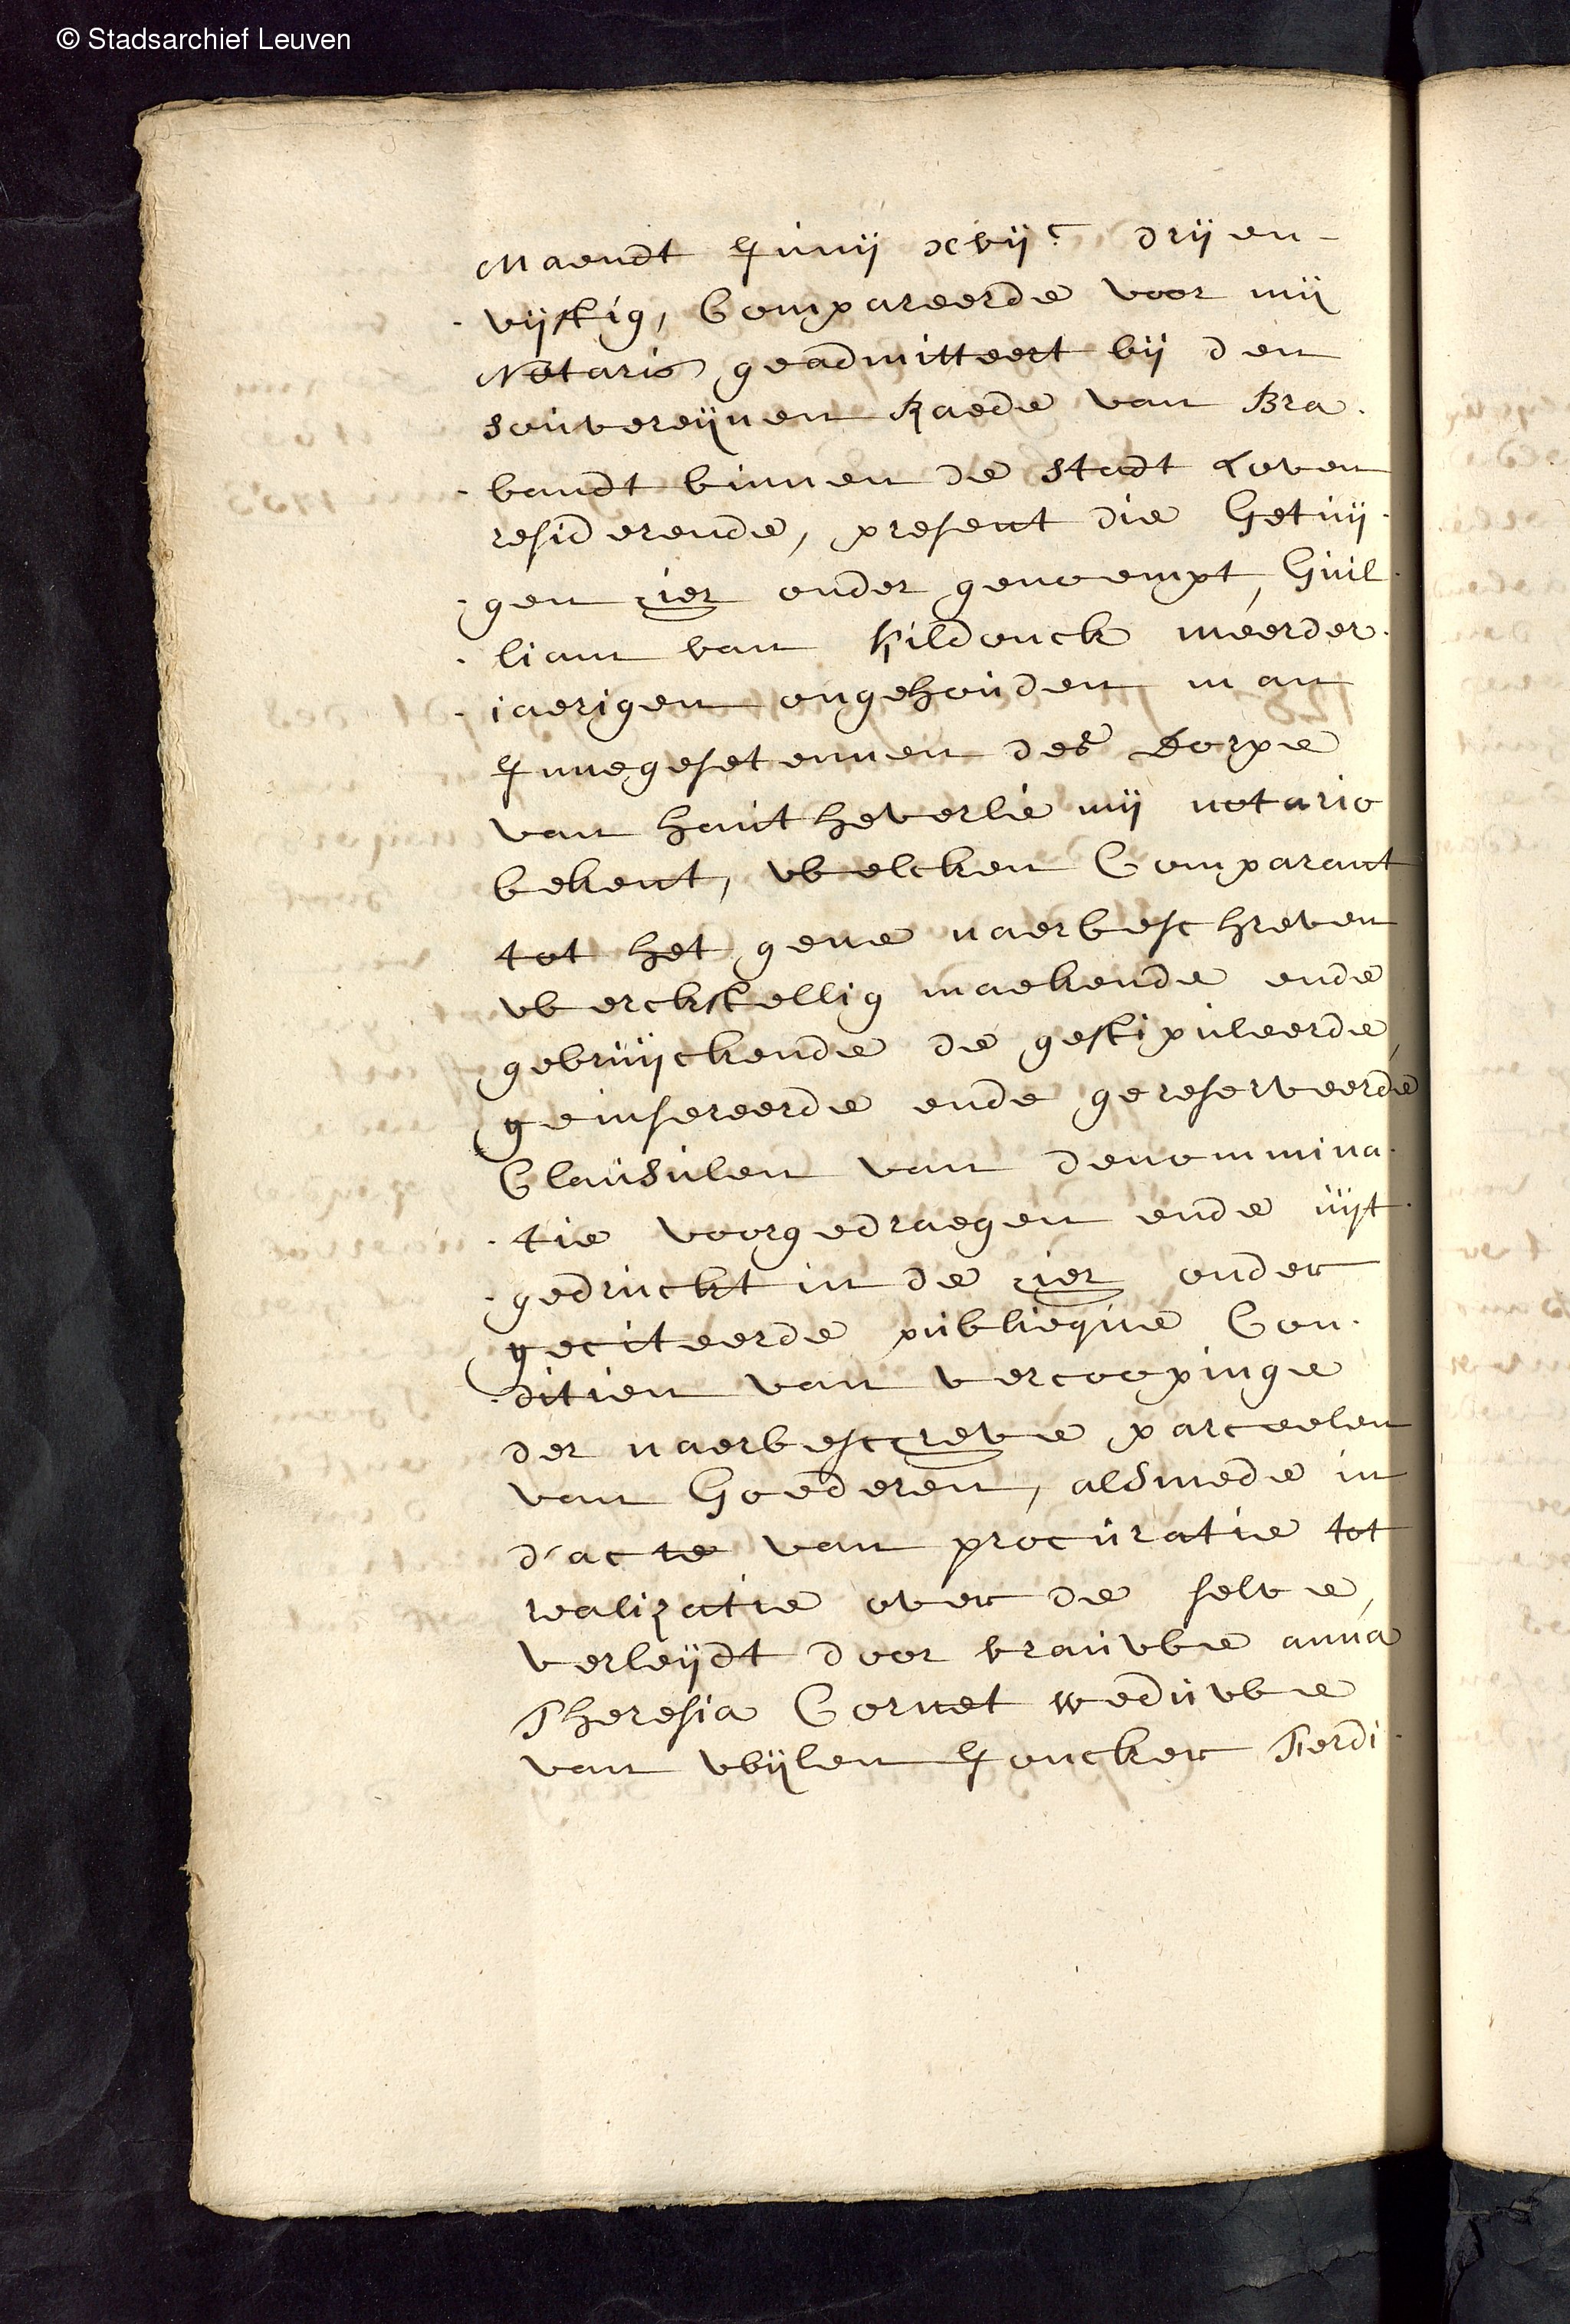 © Stadsarchief Leuven
Maendt Junij xvijC drijen-
vijftig, Compareerde voor mij
Notaris geadmitteert bij den
souvereijnen Raede van Bra-
bandt binnen de stadt Loven
residerende, present die Getuij-
gen hier onder genoempt, Guil-
liam van Kildonck meerder-
iaerigen ongehouden man
Innegesetennen des Dorpe
van haut heverlie mij notario
bekent, welcken Comparant
tot het gene naerbeschreven
werckstellig maekende ende
gebruijckende de gestipuleerde,
geinsereerde ende gereserveerde
Clausulen van denommina-
tie voorgedraegen ende uijt-
gedruckt in de hier onder
geciteerde publieque Con-
ditien van vercoopinge
der naerbescreve parceelen
van Goederen, alsmede in
d'acte van procuratie tot
realizatie over de selve,
verleijdt door vrauwe anna
Theresia Cornet weduwe
van wijlen Joncker Ferdi-